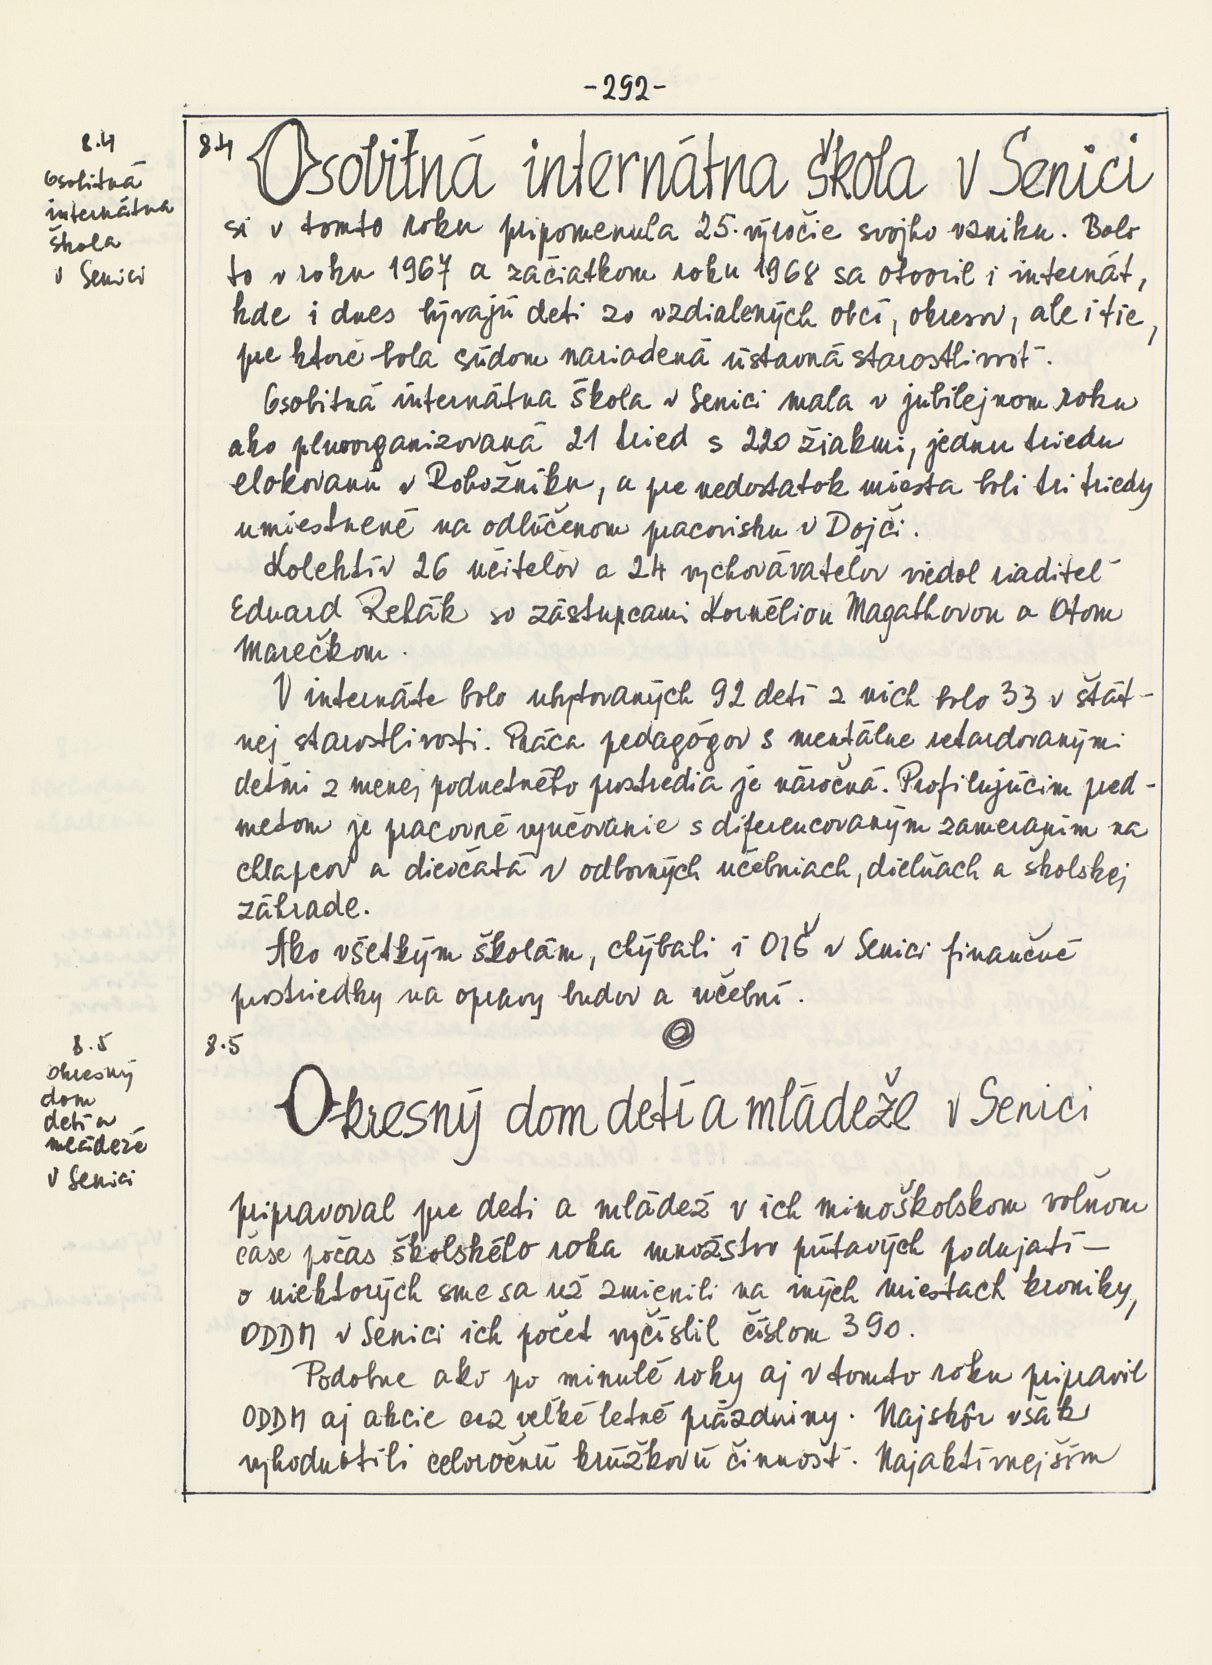 -292-
8.4
Osobitná
internátna
škola
v Senici
8.4 Osobitná internátna škola v Senici
si v tomto roku pripomenula 25. výročie svojho vzniku. Bolo
to v roku 1967 a začiatkom roku 1968 sa otvoril i internát,
kde i dnes bývajú deti zo vzdialených obcí, okresov, ale i tie,
pre ktoré bola súdom nariadená ústavná starostlivosť.
Osobitná internátna škola v Senici mala v jubilejnom roku
ako plnoorganizovaná 21 tried s 220 žiakmi, jednu triedu
elokovanú v Rohožníku, a pre nedostatok miesta boli tri triedy
umiestnené na odlúčenom pracovisku v Dojči.
Kolektív 26 učiteľov a 24 vychovávateľov viedol riaditeľ
Eduard Rehák so zástupcami Kornéliou Magathovou a Otom
Marečkom.
V internáte bolo ubytovaných 92 detí z nich bolo 33 v štát-
nej starostlivosti. Práca pedagógov s mentálne retardovanými
deťmi z menej podnetného prostredia je náročná. Profilujúcim pred-
metom je pracovné vyučovanie s diferencovaným zameraním na
chlapcov a dievčatá v odborných učebniach, dielňach a školskej
záhrade.
Ako všetkým školám, chýbali i OIŠ v Senici finančné
prostriedky na opravy budov a učební.
8.5
Okresný
dom
detí a
mládeže
v Senici
8.5
Okresný dom detí a mládeže v Senici
pripravoval pre deti a mládež v ich mimoškolskom voľnom
čase počas školského roka množstvo pútavých podujatí -
o niektorých sme sa už zmienili na iných miestach kroniky,
ODDM v Senici ich počet vyčíslil číslom 390.
Podobne ako po minulé roky aj v tomto roku pripravil
ODDM aj akcie cez veľké letné prázdniny. Najskôr však
vyhodnotili celoročnú krúžkovú činnosť. Najaktívnejším